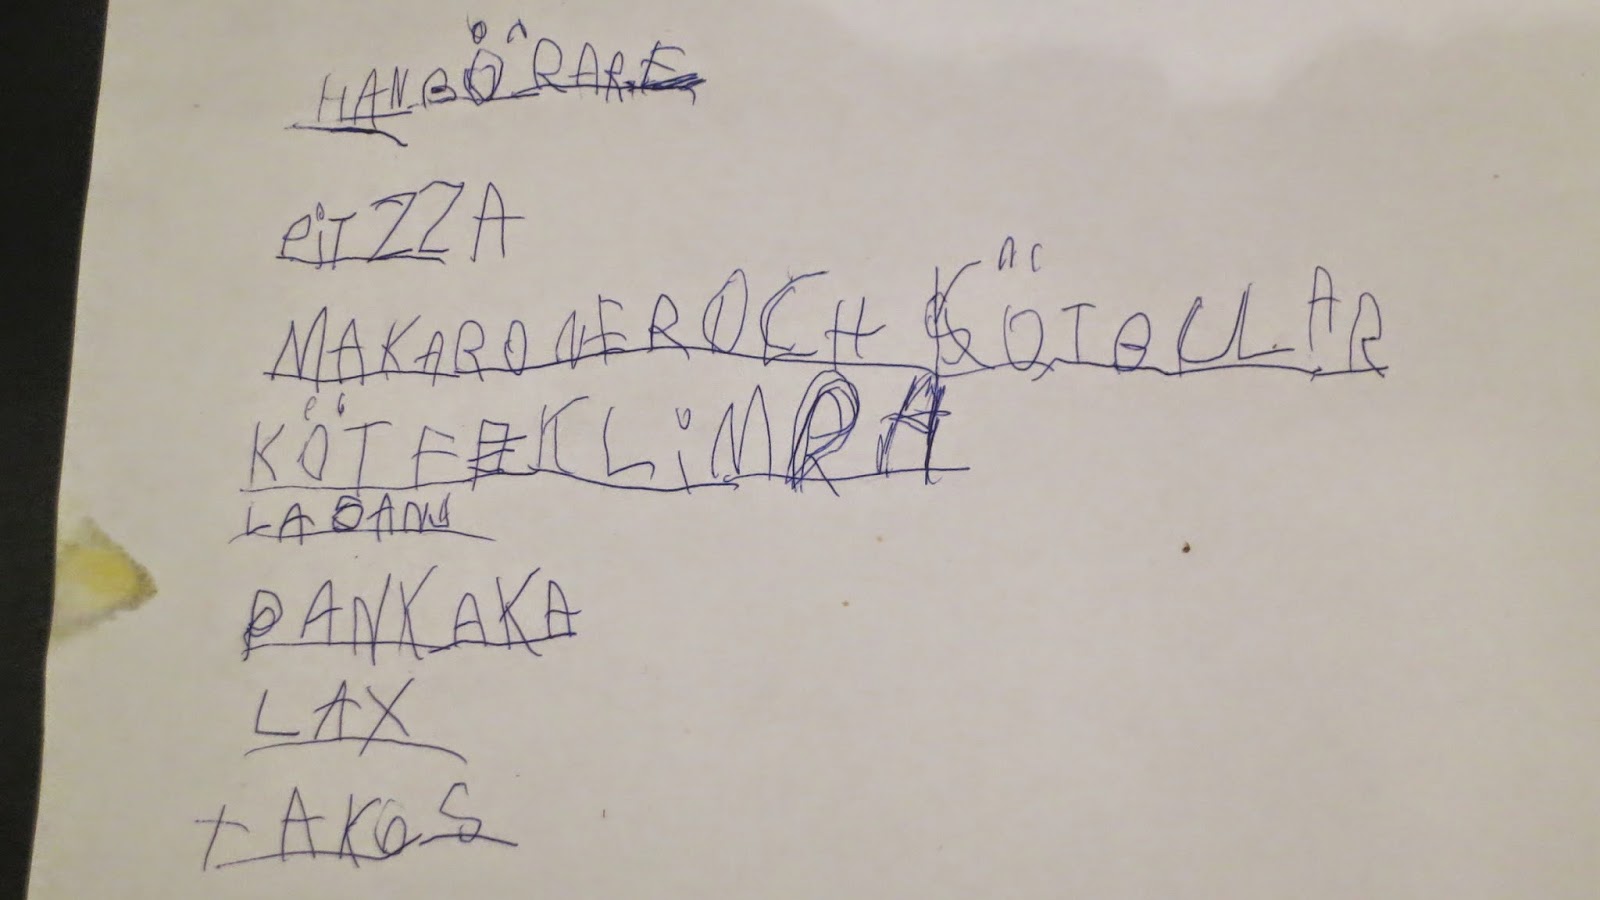 HANBÖRARE
PiTZZA
MAKARONEROCH KÖTBULLAR
KÖTFEKLiMRA
LASANJ
PANKAKA
LAX
TAKOS